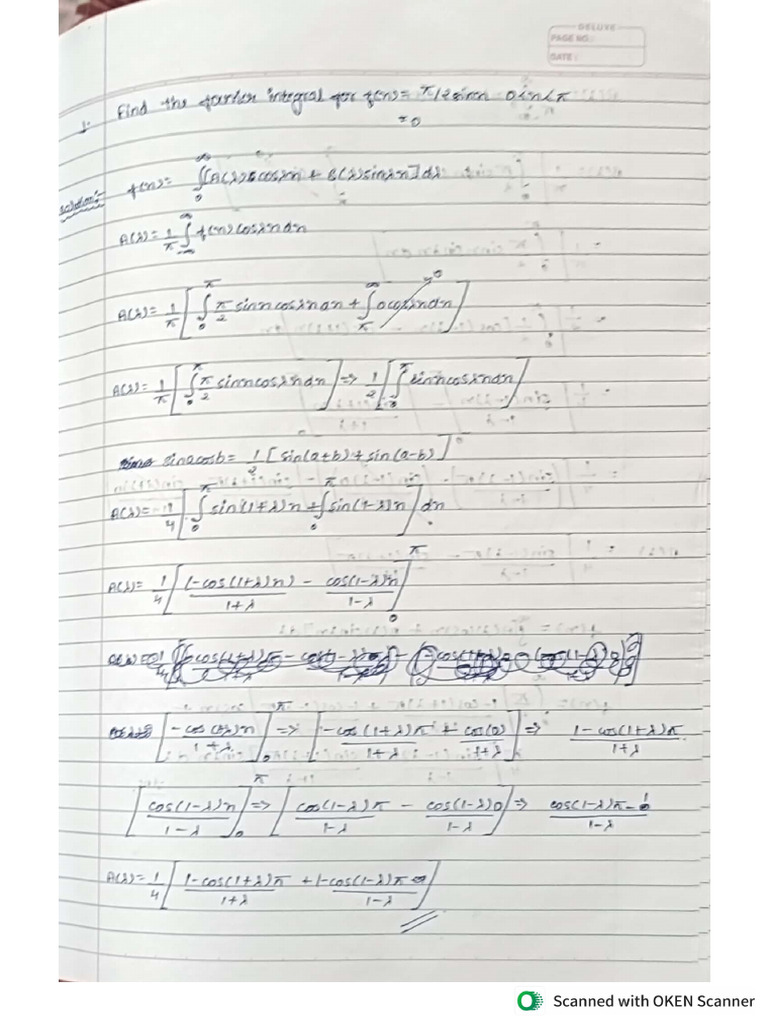 DELUXE
PAGE NO.:
DATE:
1. Find the fourier integral for f(n) = π/2 sinn 0≤n≤π
= 0
solution:- f(n) = ∫₀^∞ [A(λ) cosλn + B(λ) sinλn] dλ
A(λ) = 1/π ∫_{-∞}^{∞} f(n) cosλn dn
A(λ) = 1/π [ ∫₀^π π/2 sinn cosλn dn + ∫_π^∞ 0 cosλn dn → 0 ]
A(λ) = 1/π [ ∫₀^π π/2 sinn cosλn dn ] => 1/2 [ ∫₀^π sinn cosλn dn ]
sina cosb = 1/2 [ sin(a+b) + sin(a-b) ]
A(λ) = 1/4 [ ∫₀^π sin(1+λ)n + ∫₀^π sin(1-λ)n ] dn
A(λ) = 1/4 [ (-cos(1+λ)n)/(1+λ) - cos(1-λ)n/(1-λ) ]₀^π
[ -cos(1+λ)n/(1+λ) ]₀^π => [ -cos(1+λ)π/(1+λ) + cos(0)/(1+λ) ] => (1-cos(1+λ)π)/(1+λ)
[ cos(1-λ)n/(1-λ) ]₀^π => [ cos(1-λ)π/(1-λ) - cos(1-λ)0/(1-λ) ] => (cos(1-λ)π - 1)/(1-λ)
A(λ) = 1/4 [ (1-cos(1+λ)π)/(1+λ) + (1-cos(1-λ)π)/(1-λ) ]
Scanned with OKEN Scanner